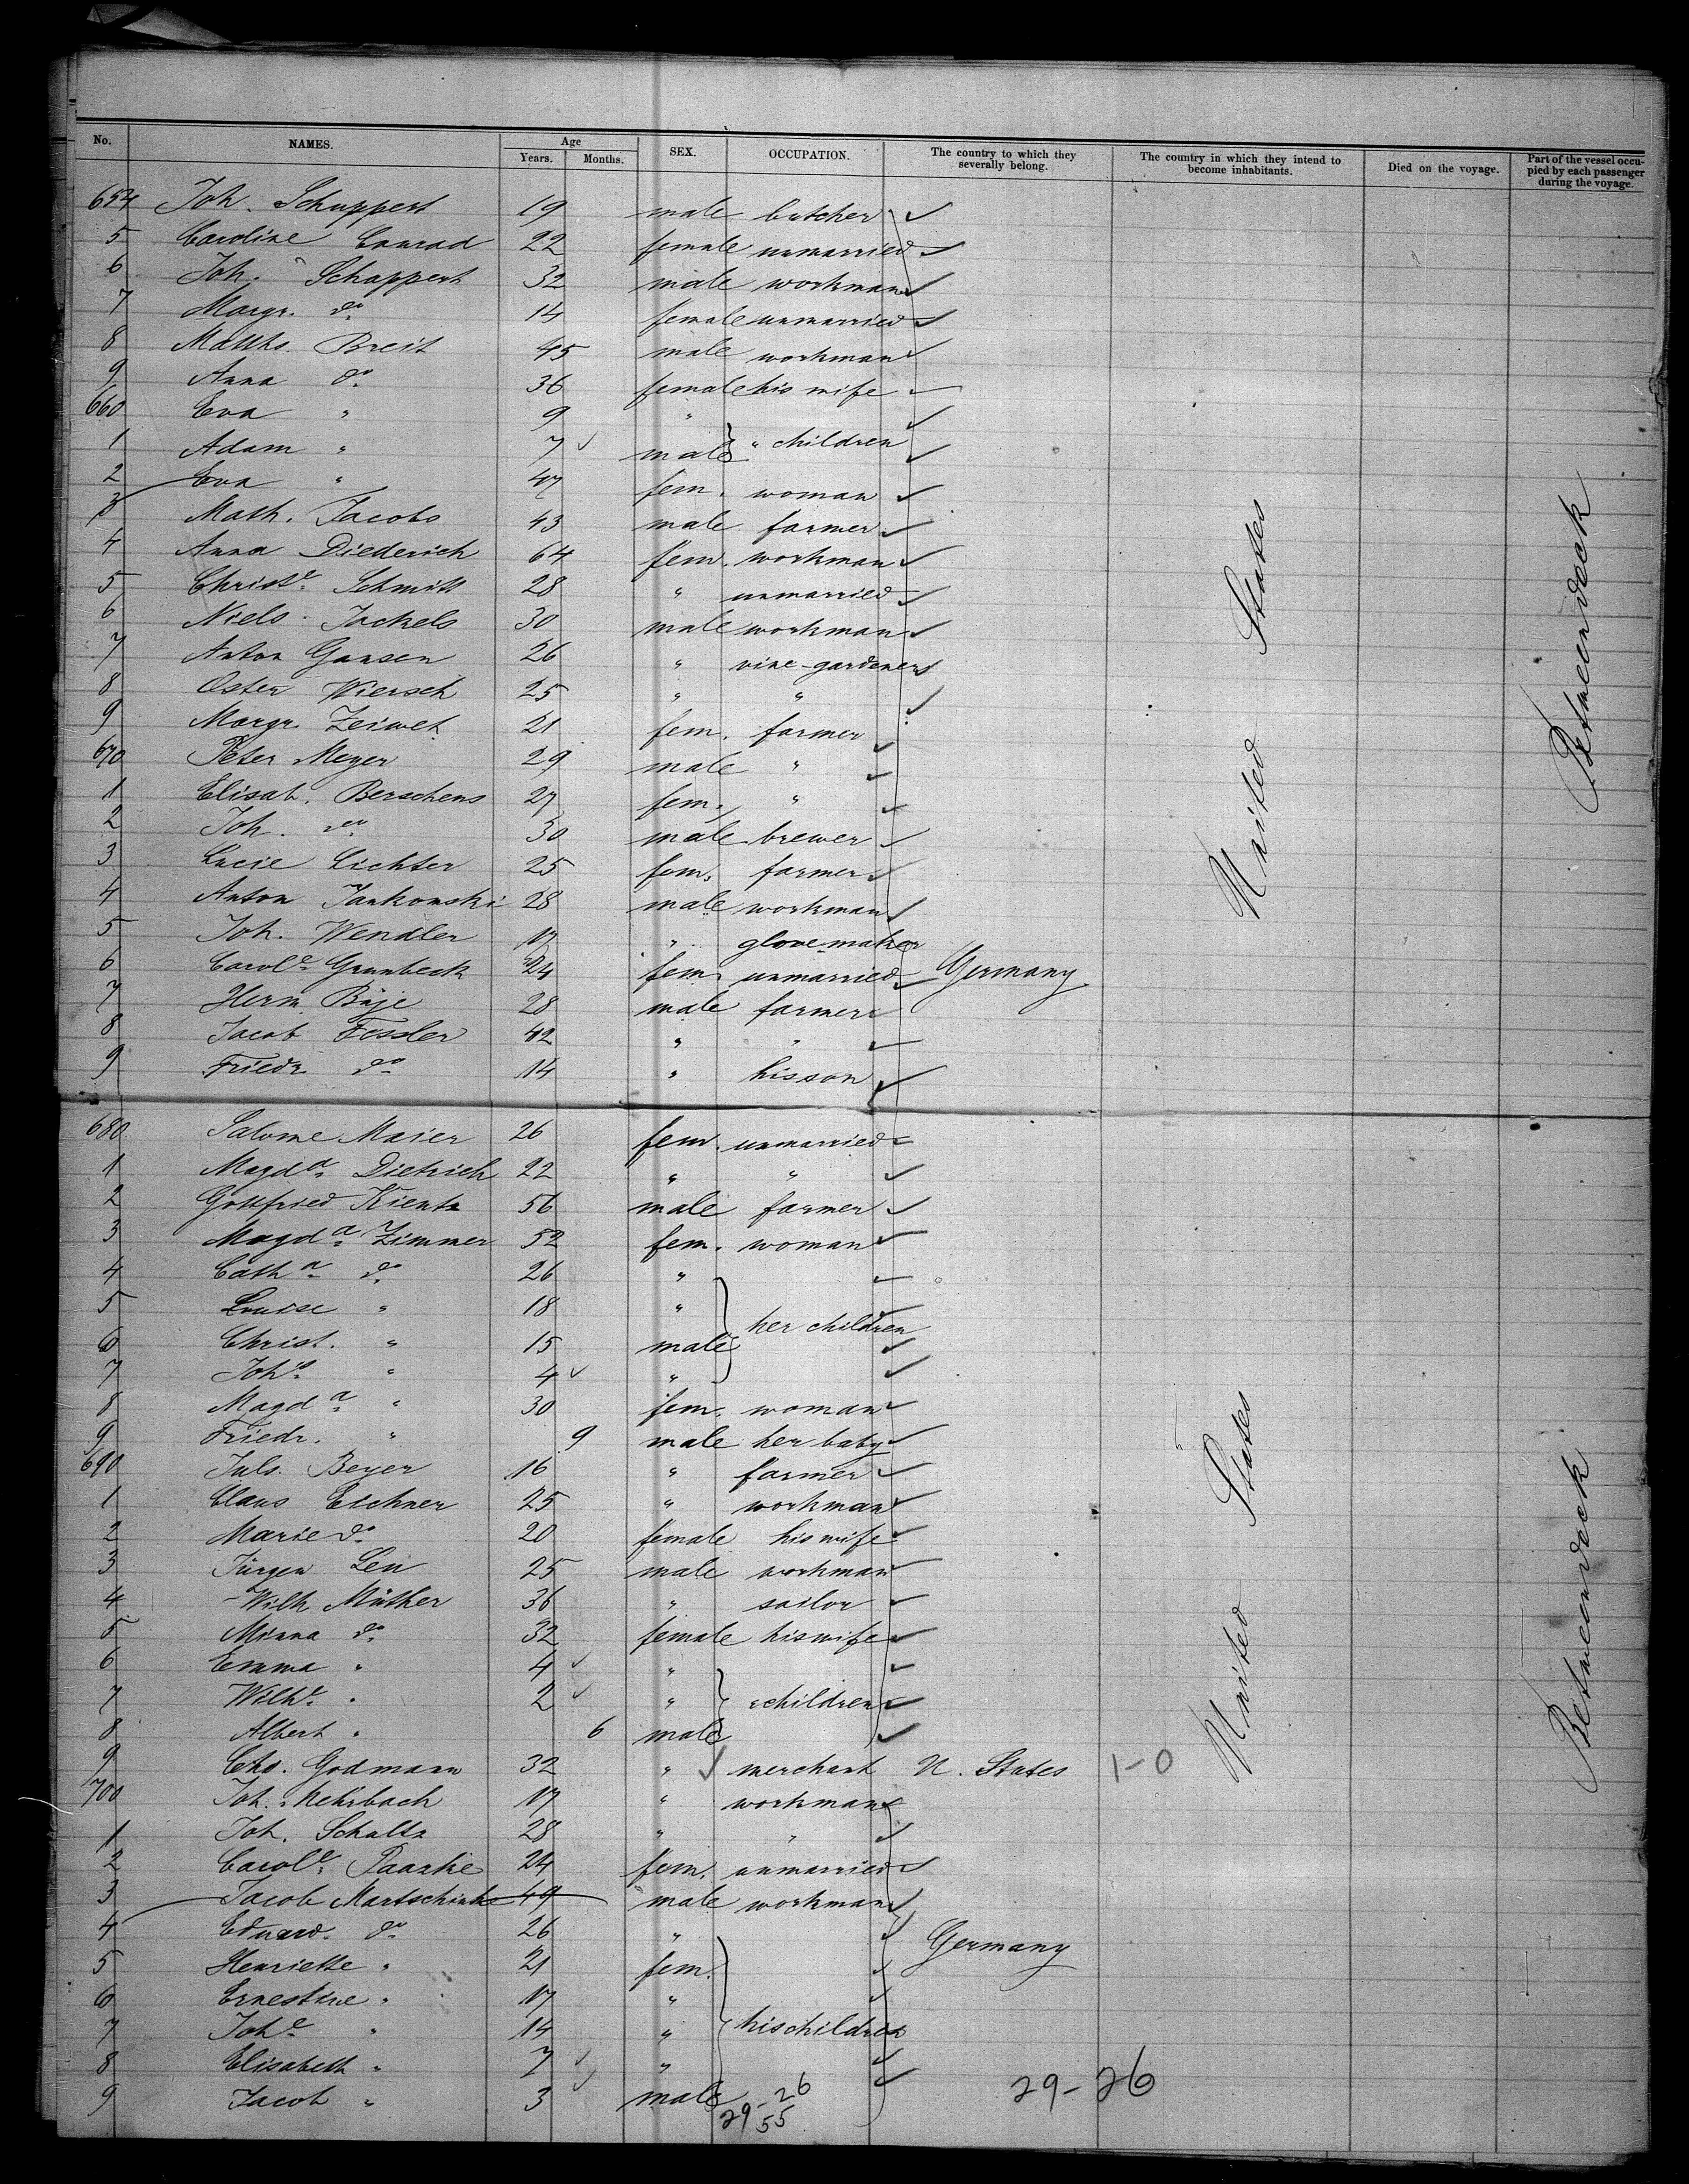 No. NAMES. Age Years. Months. SEX. OCCUPATION. The country to which they severally belong. The country in which they intend to become inhabitants. Died on the voyage. Part of the vessel occupied by each passenger during the voyage.
654 Joh. Schuppert 19 male butcher
5 Caroline Conrad 22 female unmarried
6 Joh. Schappert 32 male workman
7 Margr. do 14 female unmarried
8 Matths. Breit 45 male workman
9 Anna do 36 female his wife
660 Eva " 9 "
1 Adam " 7 male " children
2 Eva " 47 fem. woman
3 Math. Jacobs 43 male farmer
4 Anna Diederich 64 fem. workman
5 Christe. Schmitt 28 " unmarried
6 Niels. Jockels 30 male workman
7 Anton Gansen 26 " vine-gardener
8 Oster Wiersch 25 " "
9 Margr. Zeiwet 21 fem. farmer
670 Peter Meyer 29 male "
1 Elisab. Berschens 27 fem. "
2 Joh. do 30 male brewer
3 Lucie Lichter 25 fem. farmer
4 Anton Jankowski 28 male workman
5 Joh. Wendler 17 " glove-maker
6 Carole. Grunbeck 24 fem unmarried Germany
7 Herm. Böje 28 male farmer
8 Jacob Fessler 42 " "
9 Friedr. do 14 " his son
680 Salome Maier 26 fem. unmarried
1 Magda. Dietrich 22 " "
2 Gottfried Kientz 56 male farmer
3 Magda. Zimmer 52 fem. woman
4 Catha. do 26 "
5 Louise " 18 " her children
6 Christ. " 15 male
7 Johs. " 4 "
8 Magda. " 30 fem. woman
9 Friedr. " 9 male her baby
690 Juls. Beyer 16 " farmer
1 Claus Eichner 25 " workman
2 Marie do 20 female his wife
3 Jürgen Leu 25 male workman
4 Wilh. Müther 36 " sailor
5 Minna do 32 female his wife
6 Emma " 4 "
7 Wilhe. " 2 " children
8 Albert " 6 male
9 Chs. Godmann 32 " merchant U. States 1-0
700 Joh. Mehrbach 17 " workman
1 Joh. Schultz 28 " "
2 Carole. Paaske 24 fem. unmarried
3 Jacob Martschinke 49 male workman
4 Eduard. do 26 " Germany
5 Henriette " 21 fem.
6 Ernestine " 17 "
7 Johe. " 14 " his children
8 Elisabeth " 7 "
9 Jacob " 3 male
29-26
55
29-26
United States
Betweendeck
United States
Betweendeck